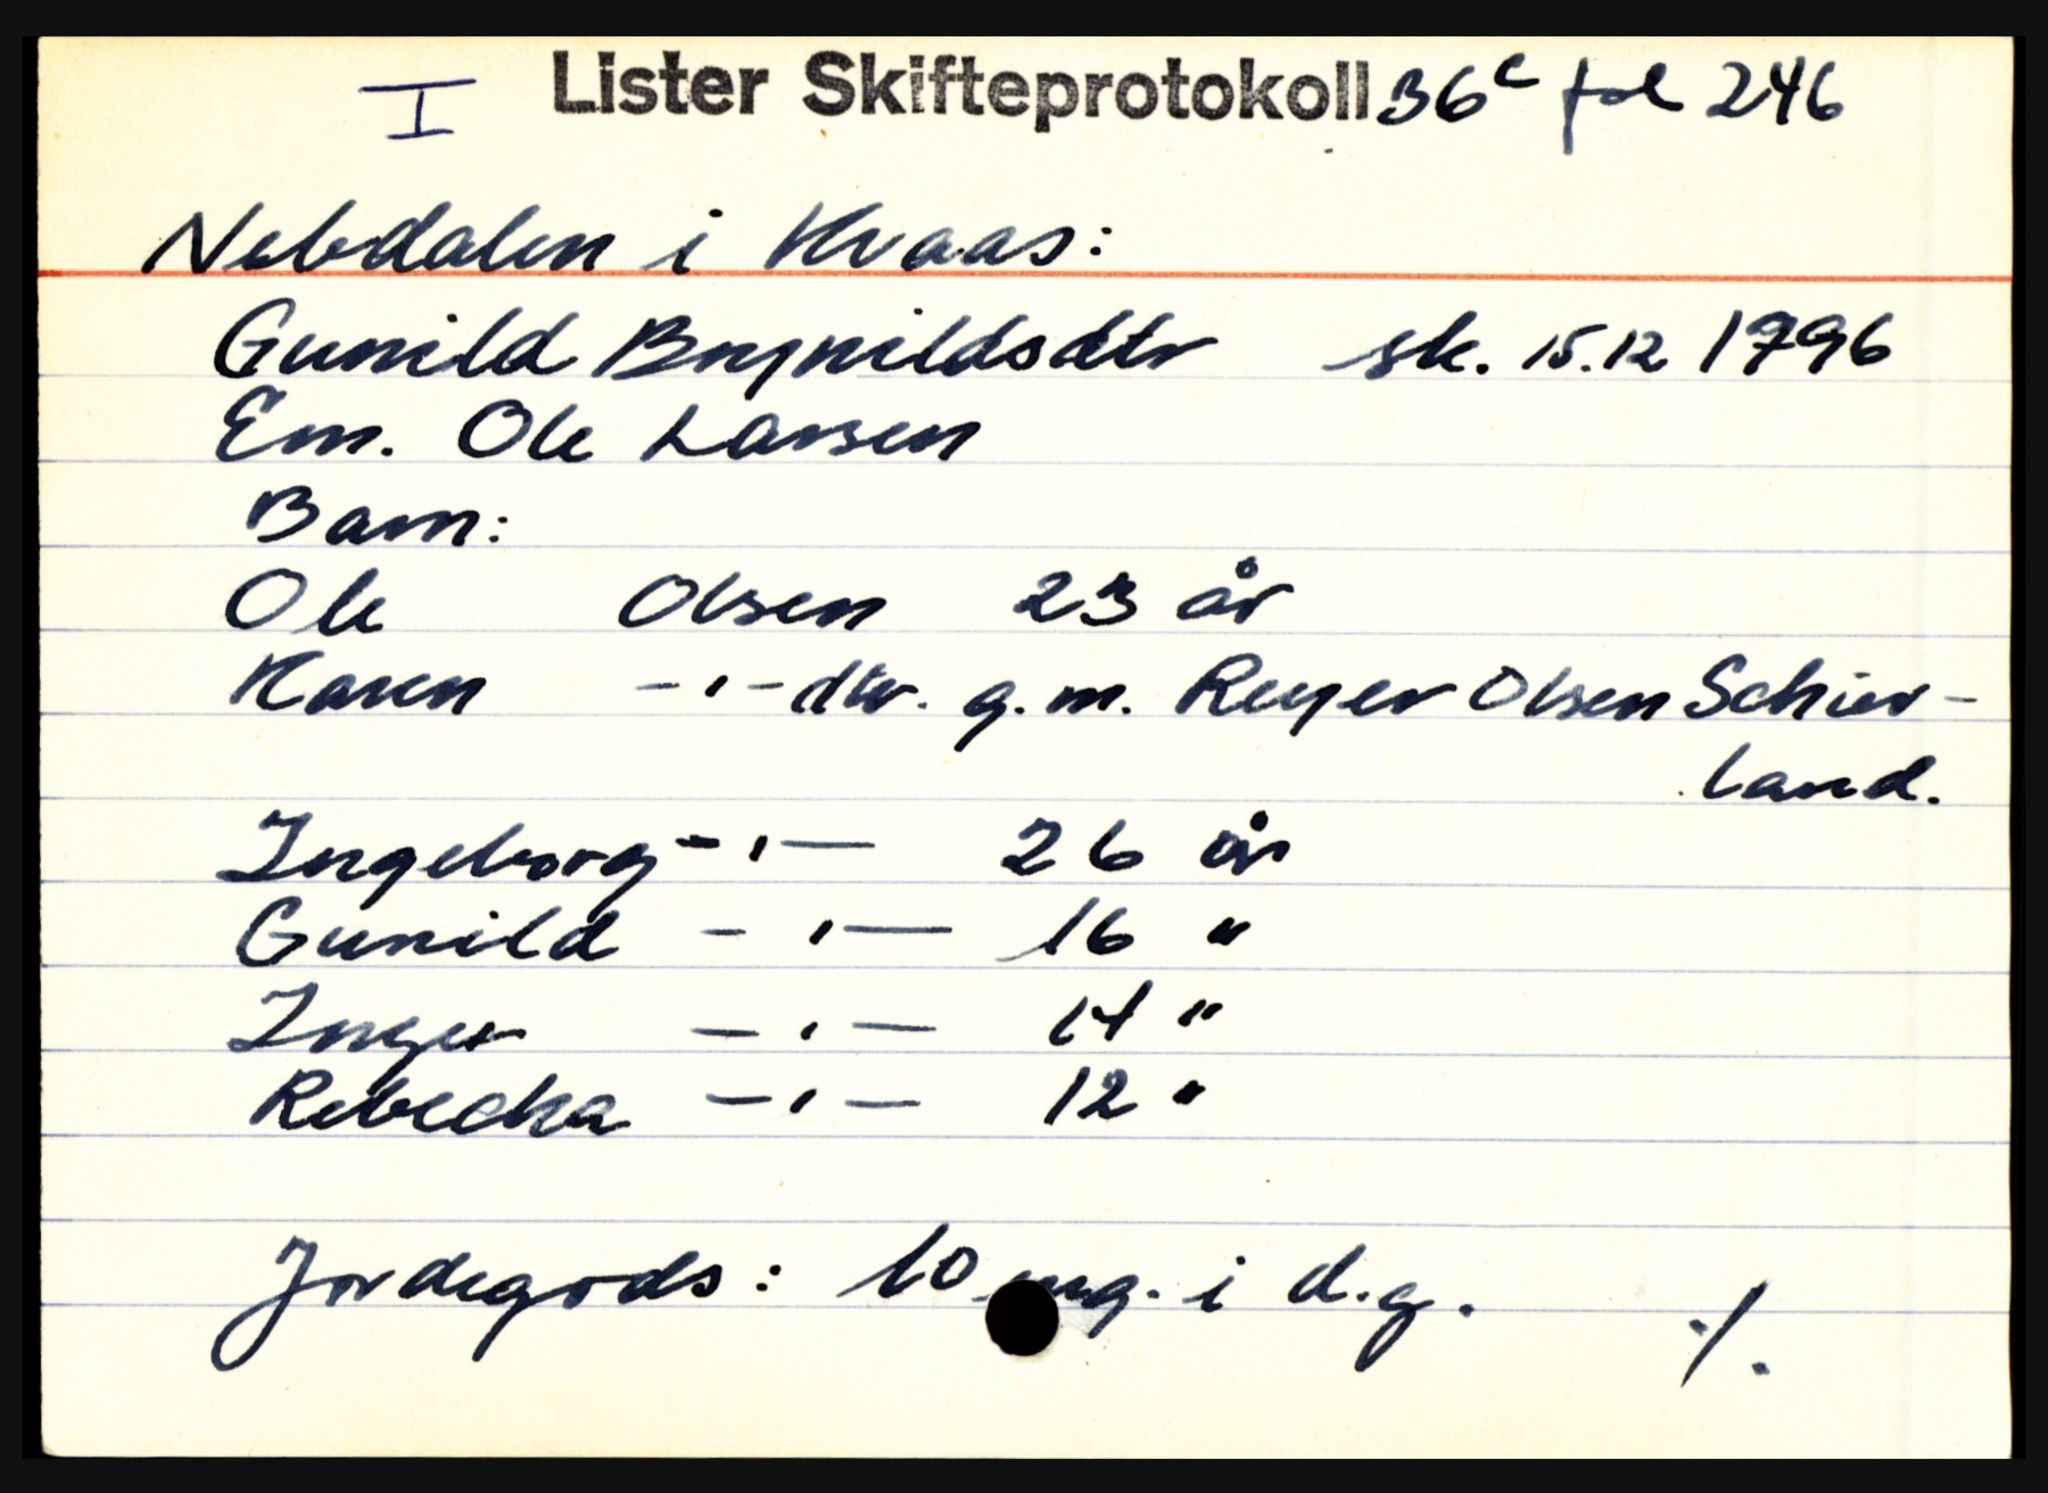 I Lister Skifteprotokoll 36c fol 246
Nebdalen i Kvaas:
Gunild Brynildsdtr sk. 15.12 1796
Em. Ole Larsen
Barn:
Ole Olsen 23 år
Karen -"- dtr. g.m. Reyer Olsen Schier-
land.
Ingeborg -"- 26 år
Gunild -"- 16 "
Inger -"- 14 "
Rebecka -"- 12 "
Jordegods: 10 mg. i d.g. ./.